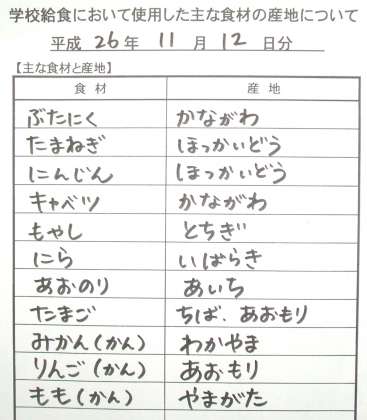 学校給食において使用した主な食材の産地について
平成 26 年 11 月 12 日分
【主な食材と産地】
食材 産地
ぶたにく かながわ
たまねぎ ほっかいどう
にんじん ほっかいどう
キャベツ かながわ
もやし とちぎ
にら いばらき
あおのり あいち
たまご ちば、あおもり
みかん(かん) わかやま
りんご(かん) あおもり
もも(かん) やまがた